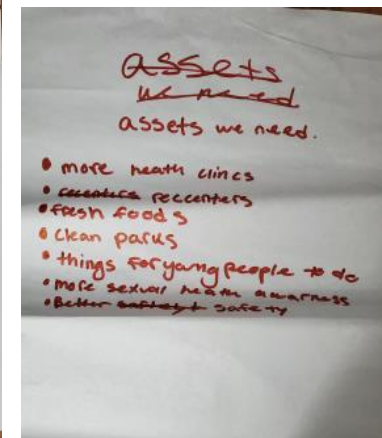 assets
we need
assets we need.
• more heath clincs
• reccenters
• fresh foods
• clean parks
• things for yang people to do
• more sexual heath awarness
• Better safety